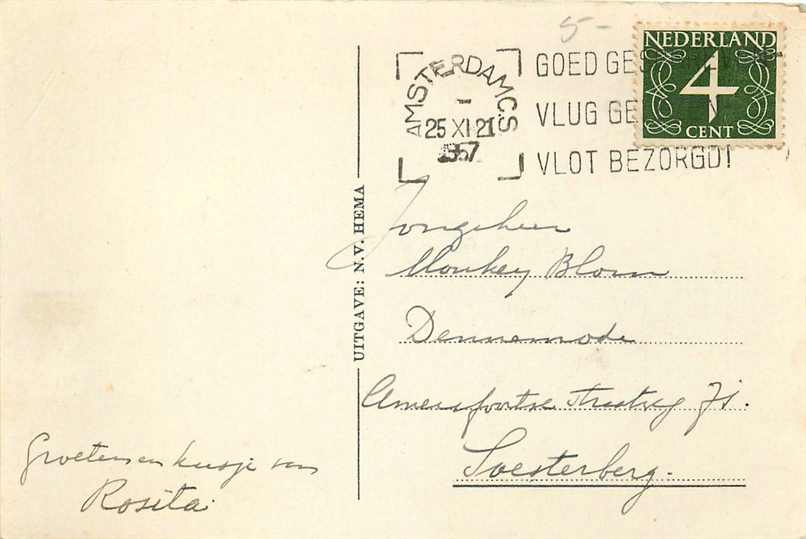 5-
NEDERLAND
4
CENT
AMSTERDAM C.S
25 XI 21
1957
GOED GE
VLUG GE
VLOT BEZORGD!
UITGAVE: N.V. HEMA
Jongeheer
Monkey Blom
Dennemode
Amersfoortse straatweg 71.
Soesterberg.
Groeten en kusje van
Rosita.